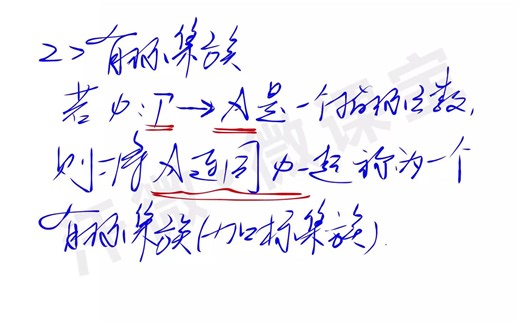 2> 有标集族
若φ:Γ→A是一个指标函数,
则将A连同φ一起称为一个
有标集族(加标集族).
微课宝